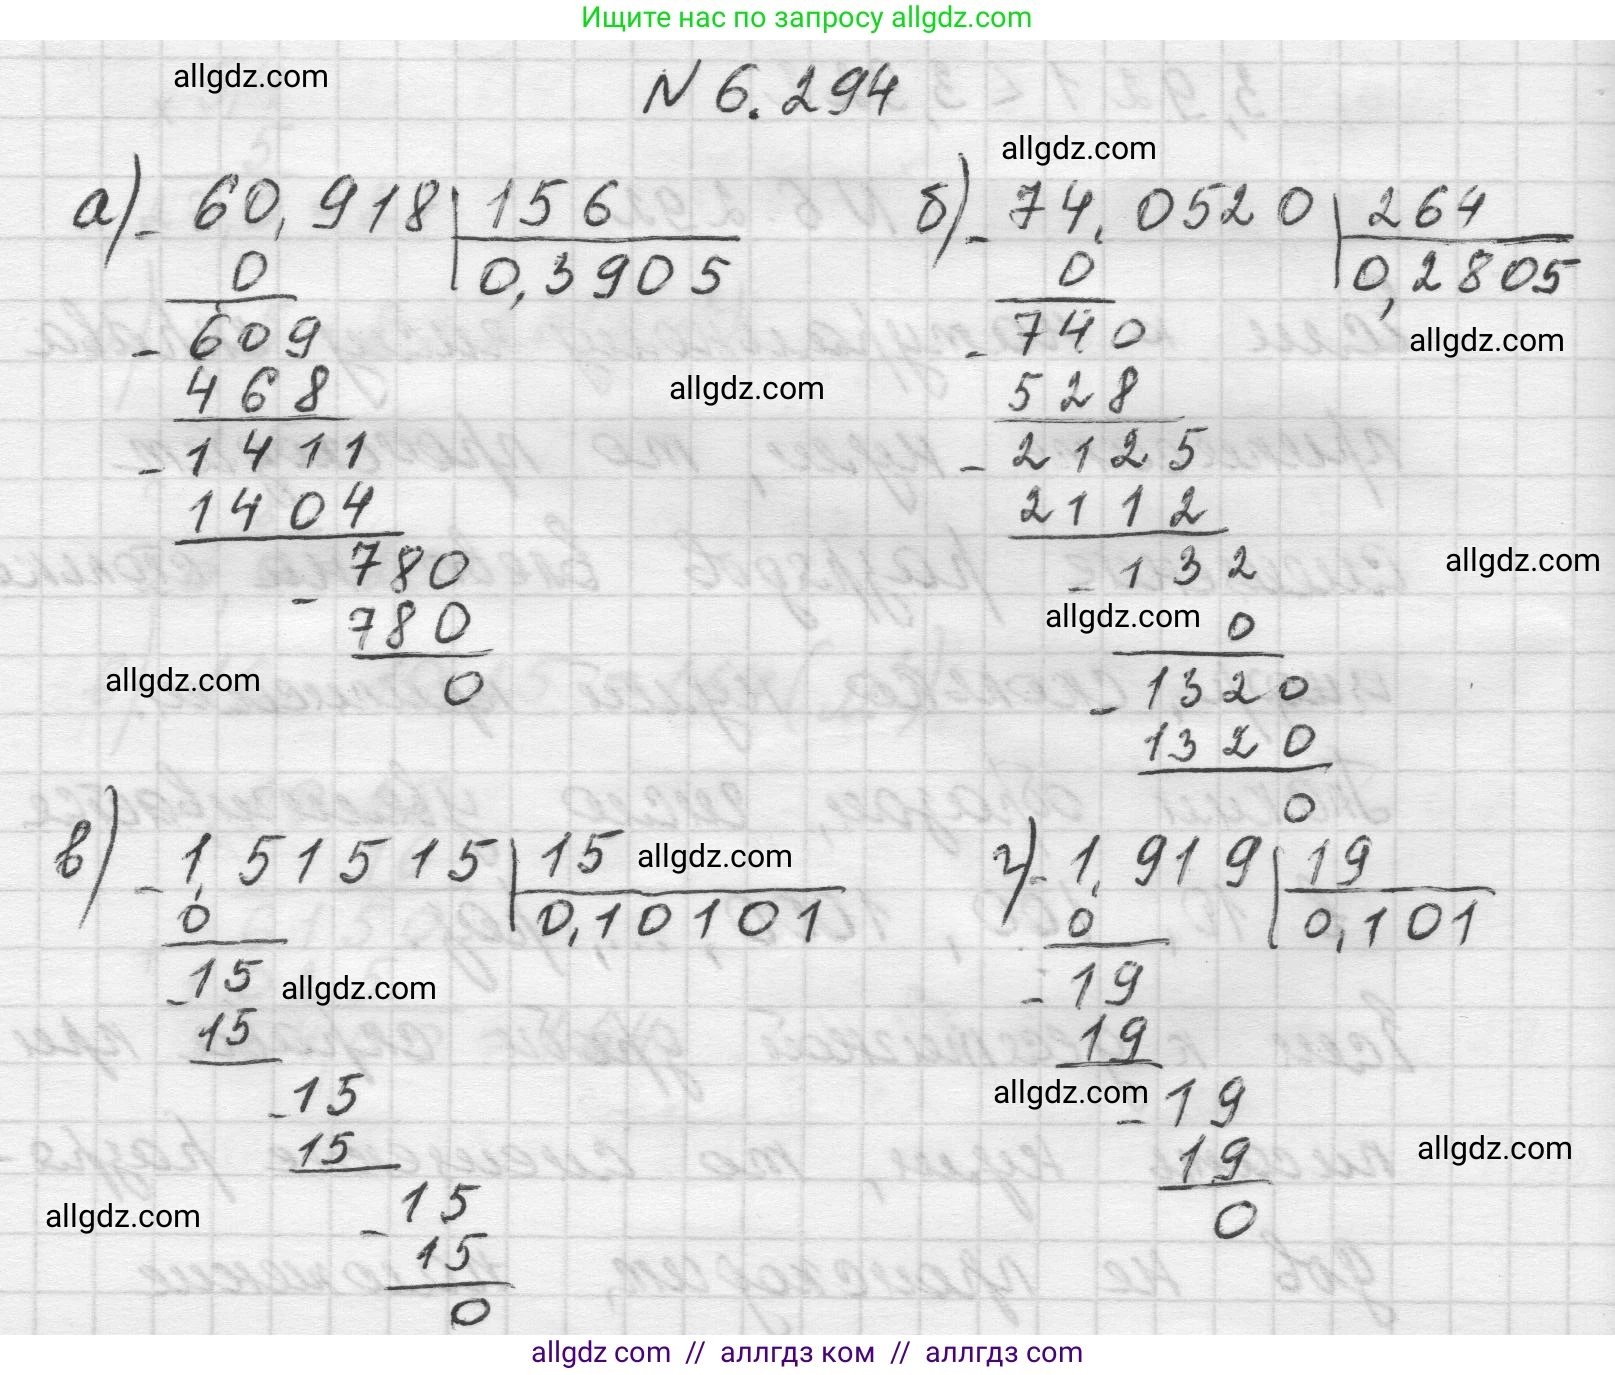 Ищите нас по запросу allgdz.com
allgdz.com
N 6.294
allgdz.com
а) - 60,918 | 156
0 | 0,3905
- 609
468
- 1411
1404
- 780
780
0
allgdz.com
allgdz.com
б) - 74,0520 | 264
0 | 0,2805
allgdz.com
- 740
528
- 2125
2112
allgdz.com
- 132
allgdz.com
0
- 1320
1320
0
в) - 1,51515 | 15
allgdz.com
0 | 0,10101
- 15
allgdz.com
15
- 15
15
- 15
allgdz.com
15
0
г) - 1,919 | 19
0 | 0,101
- 19
19
allgdz.com
- 19
allgdz.com
19
0
allgdz com // аллгдз ком // аллгдз com